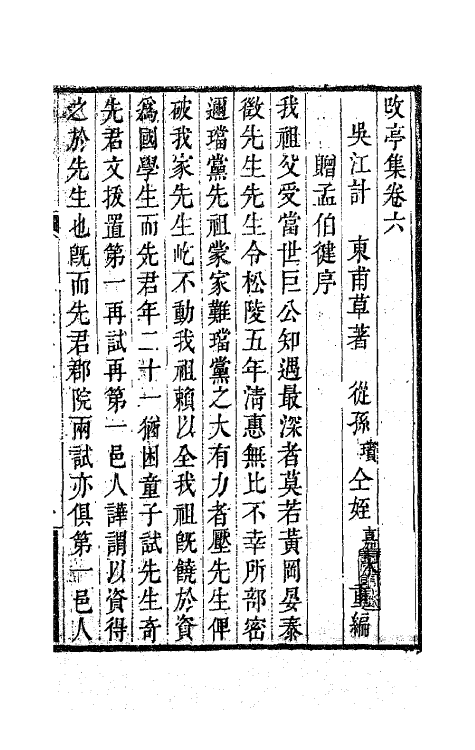 改亭集卷六
吳江計　東甫草著　從孫璸仝姪嘉　重編
贈孟伯徤序
我祖父受當世巨公知遇最深者莫若黃岡晏泰
徵先生先生令松陵五年清惠無比不幸所部密
邇璫黨先祖蒙家難璫黨之大有力者壓先生俾
破我家先生屹不動我祖賴以全我祖旣饒於資
爲國學生而先君年二十一猶困童子試先生奇
先君文拔置第一再試再第一邑人譁謂以資得
之於先生也旣而先君郡院兩試亦俱第一邑人